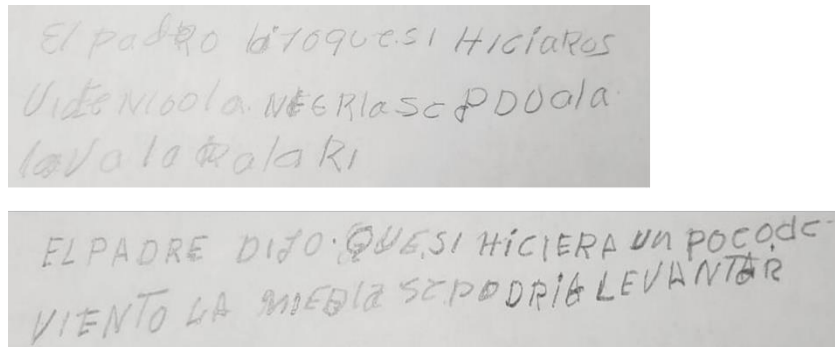 El padro bitoque.si Hiciaros
Videnloola. NEGRIaSc PDUala
lavala Ralari
EL PADRE DIJO. QUE,SI HiCIERA un poco,dc
VIENTO LA MIEBla Sc.PODRIA LEVANTAR